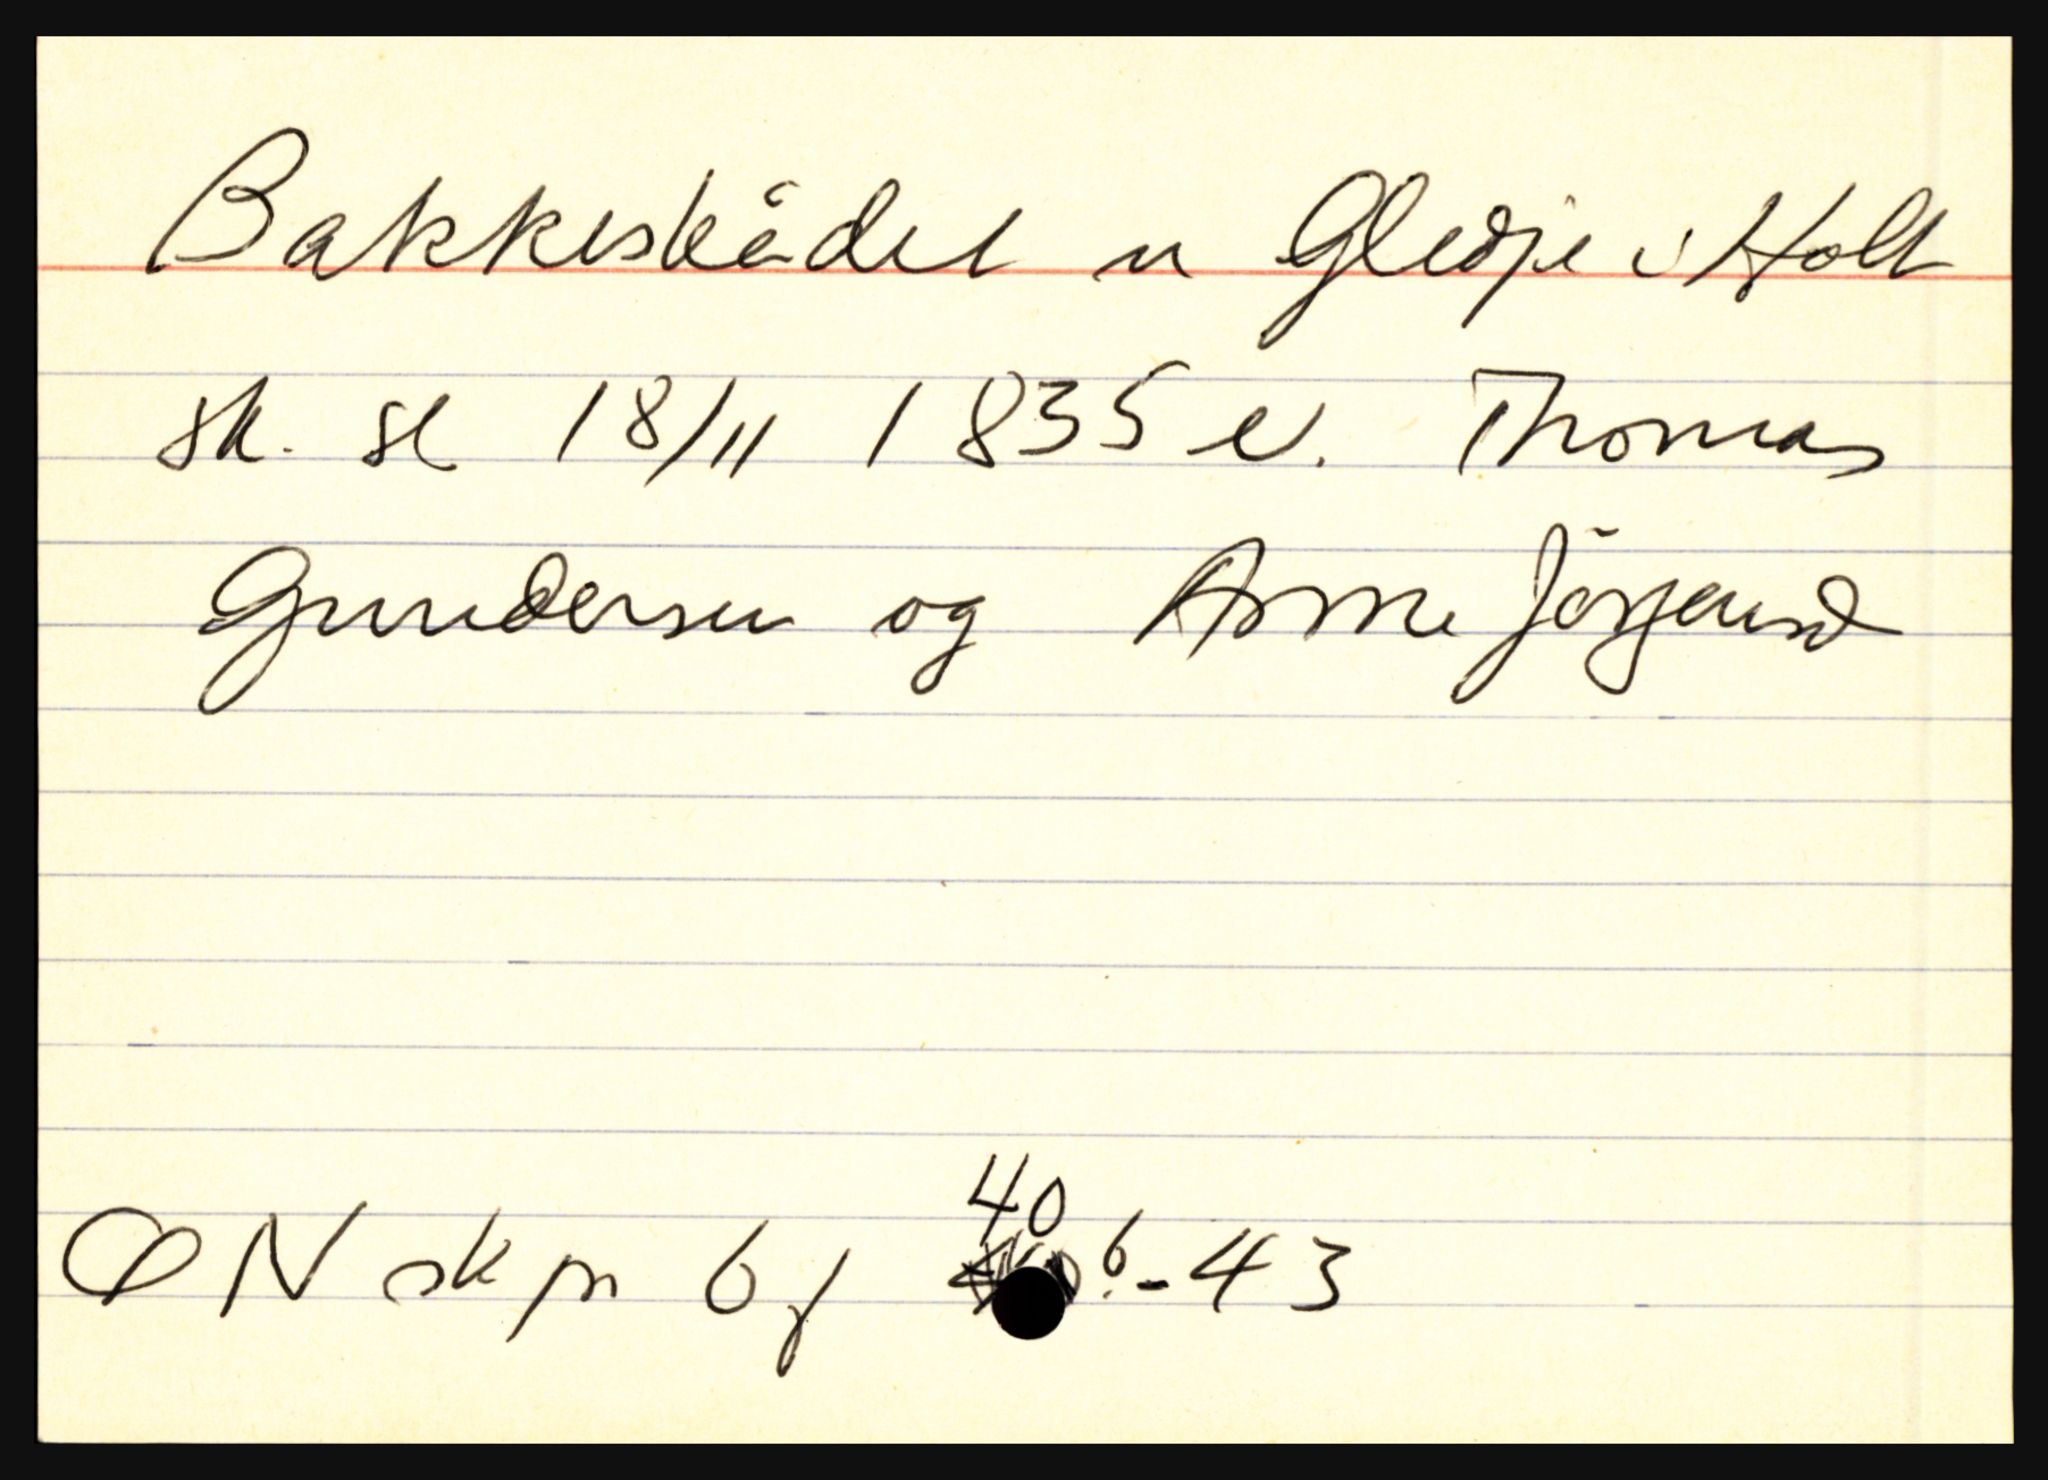 Bakkeskådet u Gledje i Holt
sk. sk 18/11 1835 v. Thomas
Gundersen og Arne Jörgensd
ØN sk pr 6 f 40 6 - 43